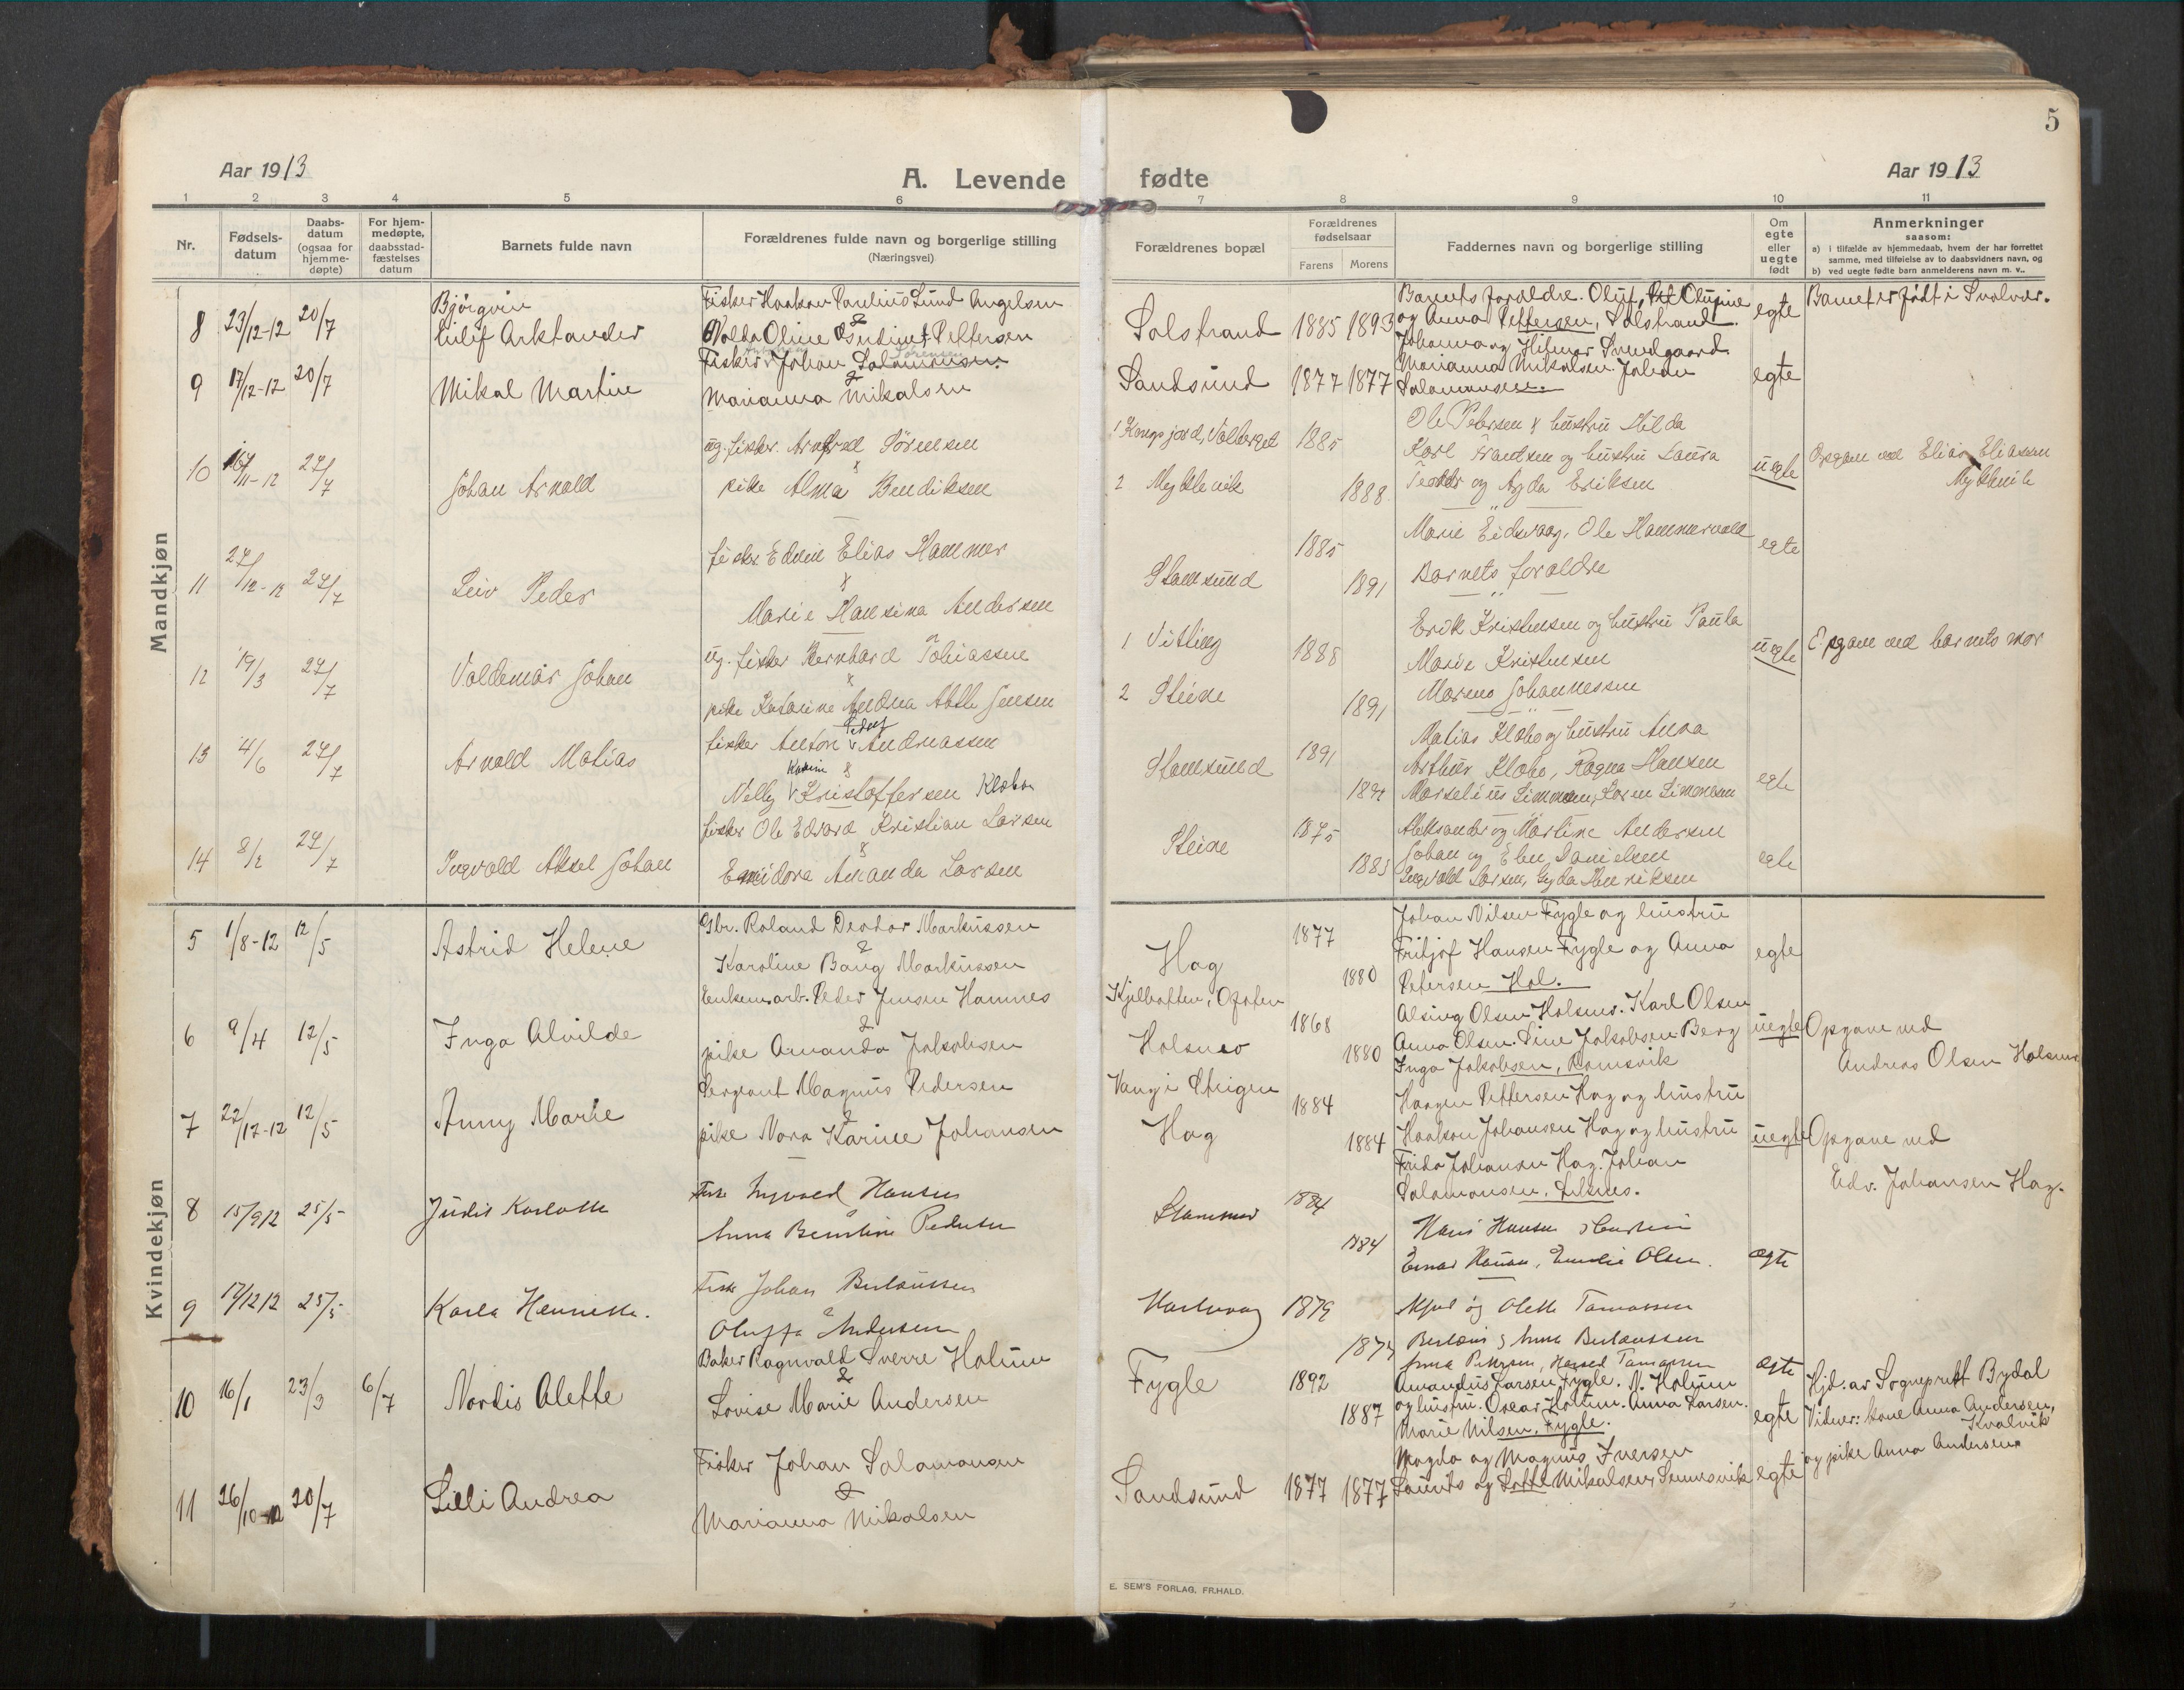 5
Aar 1913
A. Levende fødte
Aar 1913
1 2 3 4 5 6 7 8 9 10 11
Nr.
Fødsels-
datum
Daabs-
datum
(ogsaa for
hjemme-
døpte)
For hjem-
medøpte,
daabsstad-
fæstelses
datum
Barnets fulde navn
Forældrenes fulde navn og borgerlige stilling
(Næringsvei)
Forældrenes bopæl
Forældrenes
fødselsaar
Farens Morens
Faddernes navn og borgerlige stilling
Om
egte
eller
uegte
født
Anmerkninger
saasom:
a) i tilfælde av hjemmedaab, hvem der har forrettet
samme, med tilføielse av to daabsvidners navn, og
b) ved uegte fødte barn anmelderens navn m. v..
Mandkjøn
8 23/12-12 20/7
Bjørgvin
Eilif Arktander
Fisker Haakon Paulius Lund Angelsen
&
Valda Oline Pettersen
Solstrand 1885 1893
Barnets forældre. Oluf, Olufine
og Anna Pettersen, Solstrand.
Johanna og Hilmar Smedgaard
egte
Barnet er født i Svolvær.
9 17/12-12 20/7
Mikal Martin
Fisker Johan Salamonsen
&
Marianna Mikalsen
Sandsund 1877 1877
Marianna Mikalsen. Johan
Salamonsen.
egte
10 16/11-12 27/7
Johan Arnold
ug. fisker Sørensen
&
pike Alma Bendiksen
1 Kongsjord, Valberget 1885
2 Myklevik 1888
Ole Petersen & hustru Hilda
Karl Frantsen og hustru Laura
og Agda Eriksen
uegte
Opgave ved Elias Eliassen
Myklevik
11 27/12-12 27/7
Leiv Peder
fisker Edvin Elias Hammer
&
Marie Hansina Andersen
Stamsund 1885
1891
Marie Eidsvaag, Ole Hammervold
Barnets foreldre
egte
12 19/3 27/7
Valdemar Johan
ug. fisker Bernhard Tobiassen
&
pike Katarine Andrea Jensen
1 Vitting 1888
2 Steine 1891
Erik Kristensen og hustru Paula
Marie Kristensen
Johannessen
uegte
Opgave ved barnets mor
13 4/6 27/7
Arnold Matias
fisker Anton Andreassen
Karin &
Nelly Kristoffersen Klæbo
Stamsund 1891
Matias Klæbo og hustru Anna
Arthur Klæbo, Ragna Hansen
egte
14 8/2 27/7
Ingvald Aksel Johan
fisker Ole Edvard Kristian Larsen
&
Amanda Larsen
Steine 1875
1883
Aleksander og Martine Andersen
Johan og Danielsen
Ingvald Larsen, Gyda Henriksen
egte
Kvindekjøn
5 1/8-12 12/5
Astrid Helene
Gbr. Roland Deodor Markussen
&
Karoline Bang Markussen
Hag 1877
1880
Johan Nilsen Fygle og hustru
Fritjof Hansen Fygle og Anna
Petersen Hol.
egte
6 9/4 12/5
Inga Alvilde
Enkem. arb. Peder Jensen Hamnes
&
pike Amanda Jakobsen
Kjelbotten, Ofoten 1868
Holsmo 1880
Alsing Olsen Holsmo. Karl Olsen
Anna Olsen. Sine Jakobsen Berg
Inga Jakobsen, Ramsvik
uegte
Opgave ved
Andreas Olsen Holsmo
7 22/12-12 12/5
Anny Marie
Sergeant Magnus Pedersen
&
pike Nora Karine Johansen
Vang i Steigen 1884
Hag 1884
Haagen Pettersen Hag og hustru
Haakon Johansen Hag og hustru
Frida Johansen Hag. Johan
Salamonsen,
uegte
Opgave ved
Edv. Johansen Hag.
8 15/9 12 25/5
Judit Karlotte
Fisk Ingvald Hansen
Anna Pedersen
1884
1884
Hans Hansen
Einar Hansen, Emelie Olsen.
ægte
9 17/12 12 25/5
Karla Henriette.
Fisk Johan Berlaussen
&
Oluffa Andersen
1879
og Olette Tomassen
Anna Pettersen,
ægte
10 16/1 23/3 6/7
Nordis Alette
Baker Ragnvald Sverre Holum
&
Lovise Marie Andersen
Fygle 1892
1887
Amandus Larsen Fygle. N. Holum
og hustru. Oscar Holum. Anna Larsen.
Marie Nilsen. Fygle.
egte
Hjd. av Sogneprest Bydal
Vidner: kone Anna Andersen,
Kvalvik
og pike Anna Andersen
11 26/10-12 20/7
Lilli Andrea
Fisker Johan Salamonsen
&
Marianna Mikalsen
Sandsund 1877 1877
Magda og Magnus Iversen
Laurits og Lotte Mikalsen, Sennesvik
egte
E. SEM'S FORLAG, FR.HALD.